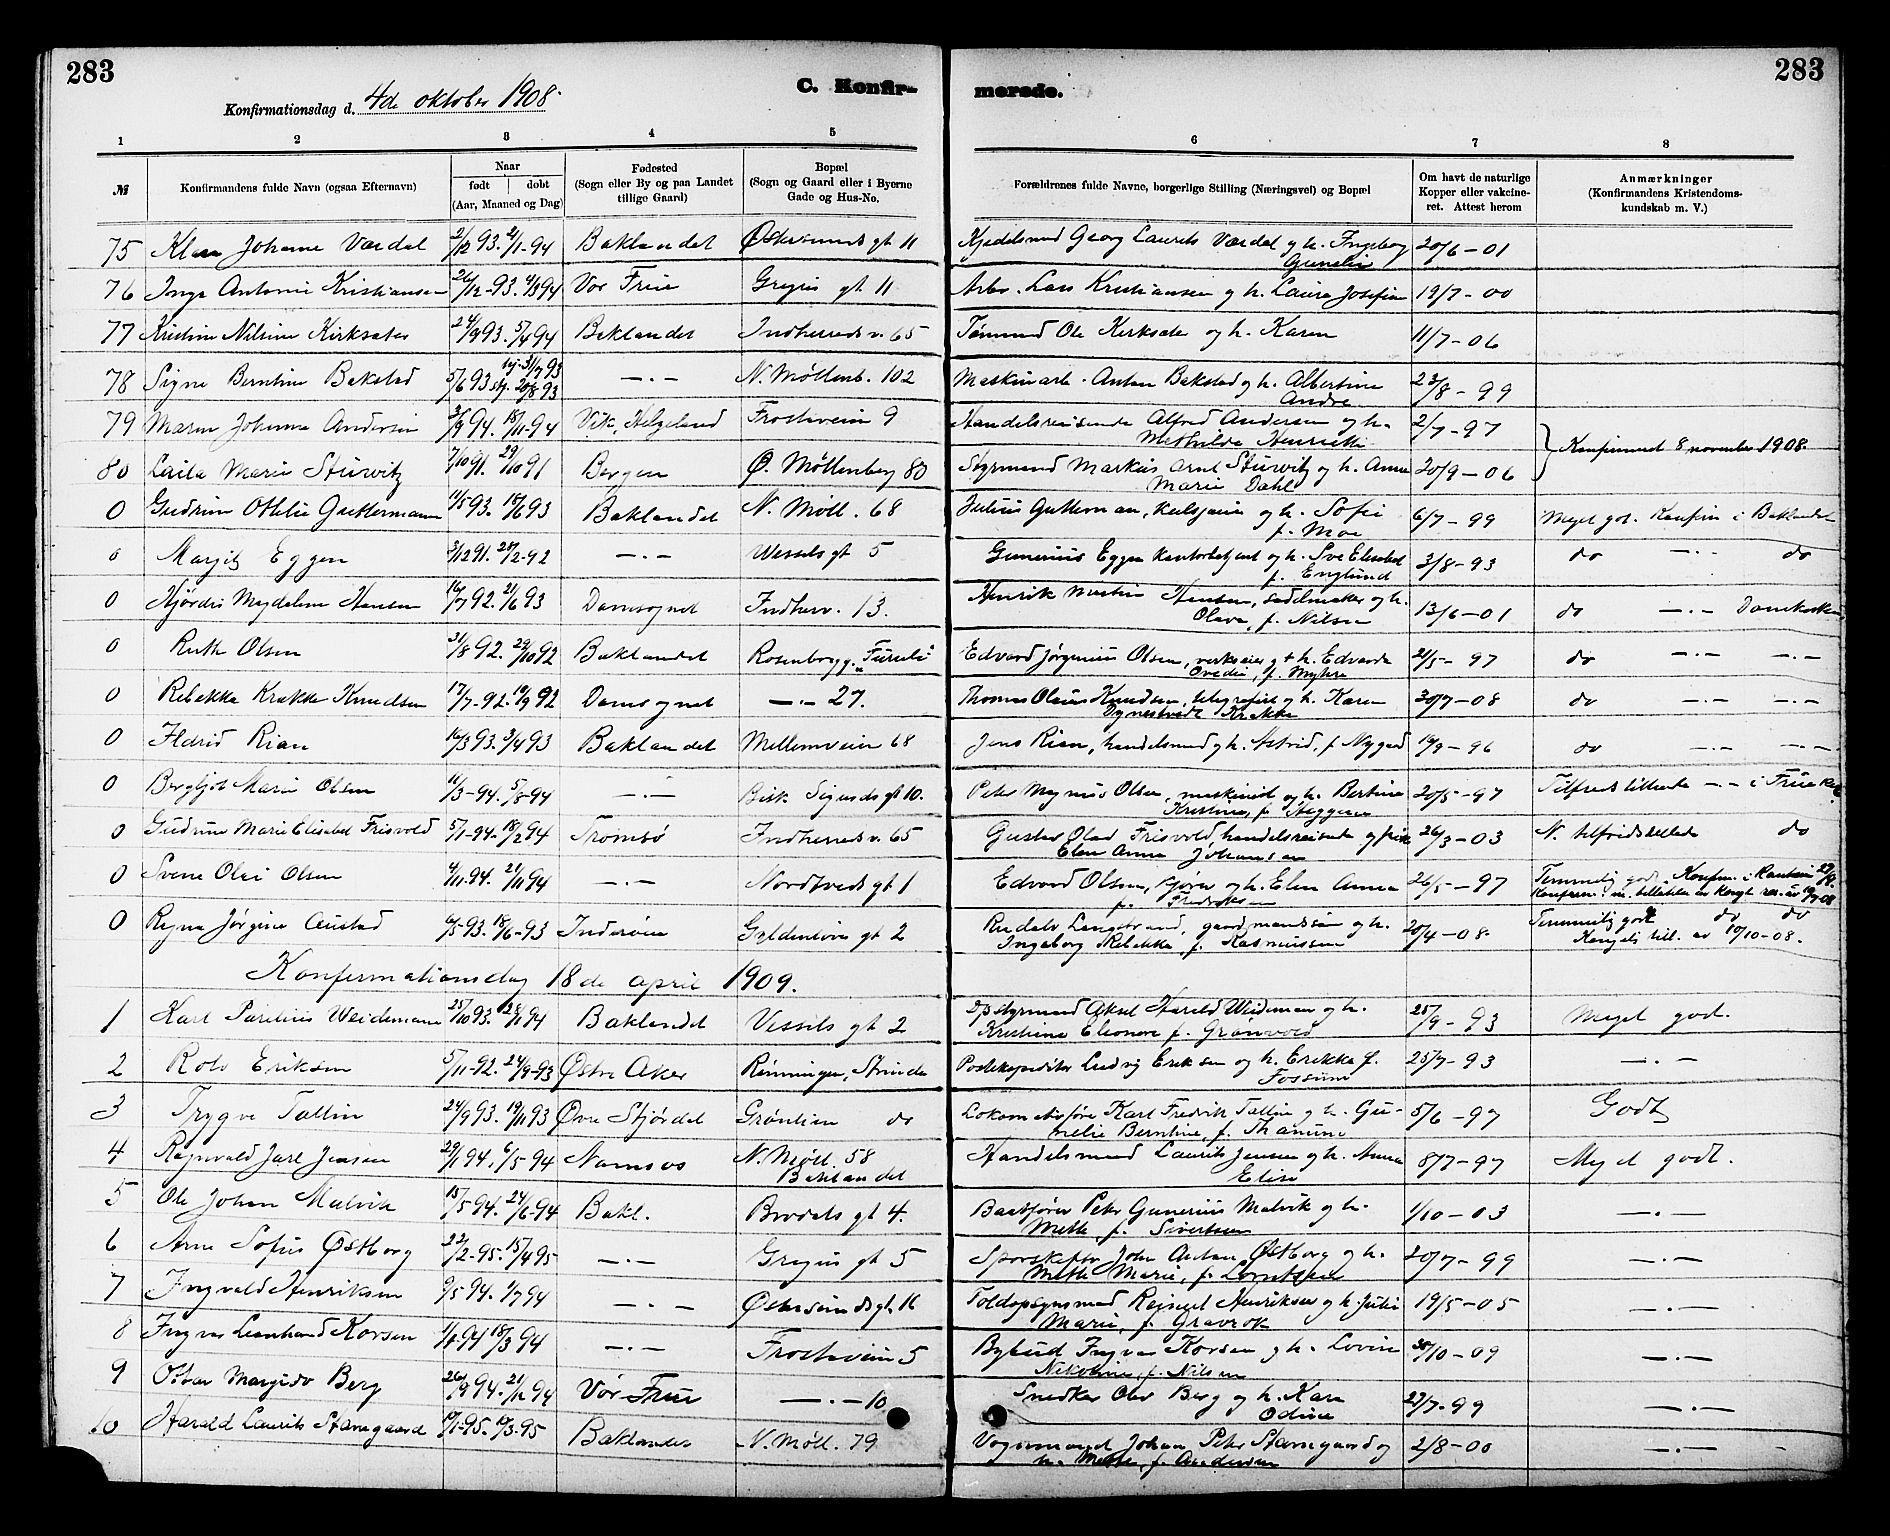 283
283
Konfirmationsdag d. 4de oktober 1908.
C. Konfir-
merede.
1 2 3 4 5 6 7 8
№
Konfirmandens fulde Navn (ogsaa Efternavn)
Naar
født | døbt
(Aar, Maaned og Dag)
Fødested
(Sogn eller By og paa Landet
tillige Gaard)
Bopæl
(Sogn og Gaard eller i Byerne
Gade og Hus-No.
Forældrenes fulde Navne, borgerlige Stilling (Næringsvei) og Bopæl
Om havt de naturlige
Kopper eller vakcine-
ret. Attest herom
Anmærkninger
(Konfirmandens Kristendoms-
kundskab m. V.)
75 Klara Johanne Værdal 2/12 93. 2/1-94 Baklandet Østersunds gt 11 Georg Laurits Værdal og h. Ingeborg 20/6-01
76 Inga Antonie Kristiansen 26/12-93. 4/3 94 Vor Frue Gregus gt 11 Arb. Lars Kristiansen og h. Laura Josefine 19/7-00
77 Kristine Nilsine Kirksæter 24/9 93. 5/4 94 Baklandet Indherreds v. 65 Tømmermd Ole Kirksæter og h. Karen 11/7-06
78 Signe Berntine Bakstad 5/6 93 hj. 31/7 93
stf. 20/8 93 —.— N. Møllenb. 102 Maskinarb. Anton Bakstad og h. Albertine
Andrea 23/8-99
79 Maren Johanna Andersen 3/9 94. 18/11-94 Vik, Helgeland Frostaveien 9 Handelsreisende Alfred Andersen og h.
Methilde Henriette 2/7-97
80 Laila Marie Sturvitz 7/10 91. 29/10 91 Bergen Ø. Møllenberg 80 Styrmand Markus Arnt Sturvitz og h. Anna
Marie Dahl 20/9-06
Konfirmered 8 november 1908.
0 Gudrun Othilie Guttormsen 11/5 93. 18/6 93 Baklandet N. Møll. 68 Julius Guttormsen, og h. Sofie
f. Moe 6/7-99 Meget god. Konfirm i Baklandet
0 Margit Eggen 3/12 91. 28/2-92 —.— Wessels gt 5 Gunerius Eggen kontorbetjent og h. Eva Elisabet
f. Englund 3/8-93 do —.— do
0 Hjørdis Magdalene Hansen 16/7 92. 21/6 93 Domsognet Indherv. 13. Henrik Martin Hansen, sadelmaker og h.
Olava, f. Nilsen 13/6-01 do —.— Domkirken
0 Ruth Olsen 31/8 92. 29/10 92 Baklandet Rosenborgg. "Furuli" Edvard Jørginius Olsen, verkseier og h. Edvarda
f. Myhre 21/5-97 do —.— —.—
0 Rebekka Krække Knudsen 17/7-92. 19/9 92 Domsognet —.— 27. Thomas Olaus Knudsen, telegrafist og h. Karen
Krække 30/7-08 do —.— —.—
0 Hdrid Rian 16/3 93. 3/4 93 Baklandet Mellemveien 68 Jens Rian, handelsmd og h. Astrid, f. Nygaard 19/9-96 do —.— —.—
0 Bergljot Marie Olsen 11/3-94. 5/8-94 —.— Bisk. Sigurds gt 10. Peter Magnus Olsen, maskinist og h. Bertine
Kristina, f. Heggesen 20/5-97 Tilfredstillende —.— i Fruekirk.
0 Gudrun Marie Elisabet Frisvold 5/1-94. 18/2 94 Tromsø Indherreds v. 65 Gustav Olaf Frisvold, handelsreisende og frue
Elen Anna Johansen 26/3-03 N. tilfridstillede do
0 Svene Olai Olsen 4/11-94. 21/11 94 —.— Nordtveds gt 1 Edvard Olsen, kjører og h. Elen Anna
f. Fredriksen 26/5-97 Temmelig god.
0 Ragna Jørgine Austad 6/5-93. 18/6-93 Inderøen Gyldenløves gt 2 Rudolv Langstrand, gaardmandssøn og h.
Ingeborg Rebekka f. Rasmussen 20/4-08 Temmelig godt do do
Kongels till. av 10/10-08.
Konfirmationsdag 18de april 1909.
1 Karl Parelius Weidemann 25/10 93. 28/1 94 Baklandet Vessels gt 2 Dpstyrmand Aksel Harald Weideman og h.
Kristine Eleonore f. Grønvold 25/9-93 Meget god.
2 Rolv Eriksen 5/11-92. 24/9-93 Østre Aker Rønningen, Strinda Postekspeditør Ludvig Eriksen og h. Erikka f.
Fossum 25/7-93 —.—
3 Trygve Tallin 24/9 93. 19/11 93 Øvre Stjørdal Grønlien do Lokomotivfører Karl Fredrik Tallin og h. Gu-
nelie Berntine, f. Thanune 5/6-97 Godt
4 Ragnvald Jarl Jensen 29/1 94. 6/5-94 Namsos N. Møll. 58
Baklandet Handelsmand Laurits Jensen og h. Anna
Elise 8/7-97 Meget godt.
5 Ole Johan Malvik 15/5-94. 24/6-94 Bakl. Brodals gt 4. Baatfører Peter Gunerius Malvik og h.
Mette f. Sivertsen 1/10-03 —.—
6 Arne Sofus Østborg 22/2-95. 15/4 95 —.— Gregus gt 5 John Anton Østborg og h.
Mette Marie, f. Lorntsen 20/7-99 —.—
7 Ingvald Henriksen 9/5-94. 1/7 94 —.— Østersunds gt 16 Toldopsynsmand Henriksen og h. Julie
Marie, f. Gravrok 19/5-05 —.—
8 Ingvar Leonhard Korsen 1/1-94 18/3 94 —.— Frostaveien 5 Bybud Ingvar Korsen og h. Lovise
Nikoline, f. Nilsen 30/10-09 —.—
9 Oskar Margido Berg 26/9 94. 21/12 94 Vor Frue —.— 10 Snedker Olav Berg og h. Kare
Odine 27/7-99 —.—
10 Harald Laurits Stavnegaard 19/1-95. 19/3-95 Baklandet N. Møll. 79 Vognmand Johan Peter Stavnegaard og
h. Mette, f. Andersen 2/8-00 —.—